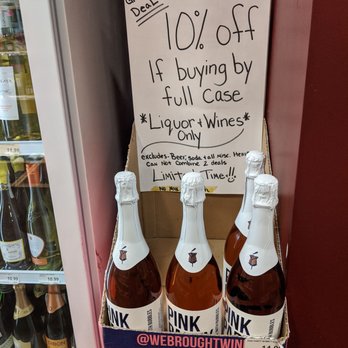 Deal
10% off
If buying by
full Case
*Liquor & Wines*
Only
excludes: Beer, soda & all misc.
Can Not Combine 2 deals
Limited Time!!!
PINK
PINK
PINK
@WEBROUGHTWIN
11.99
10.99
10.99